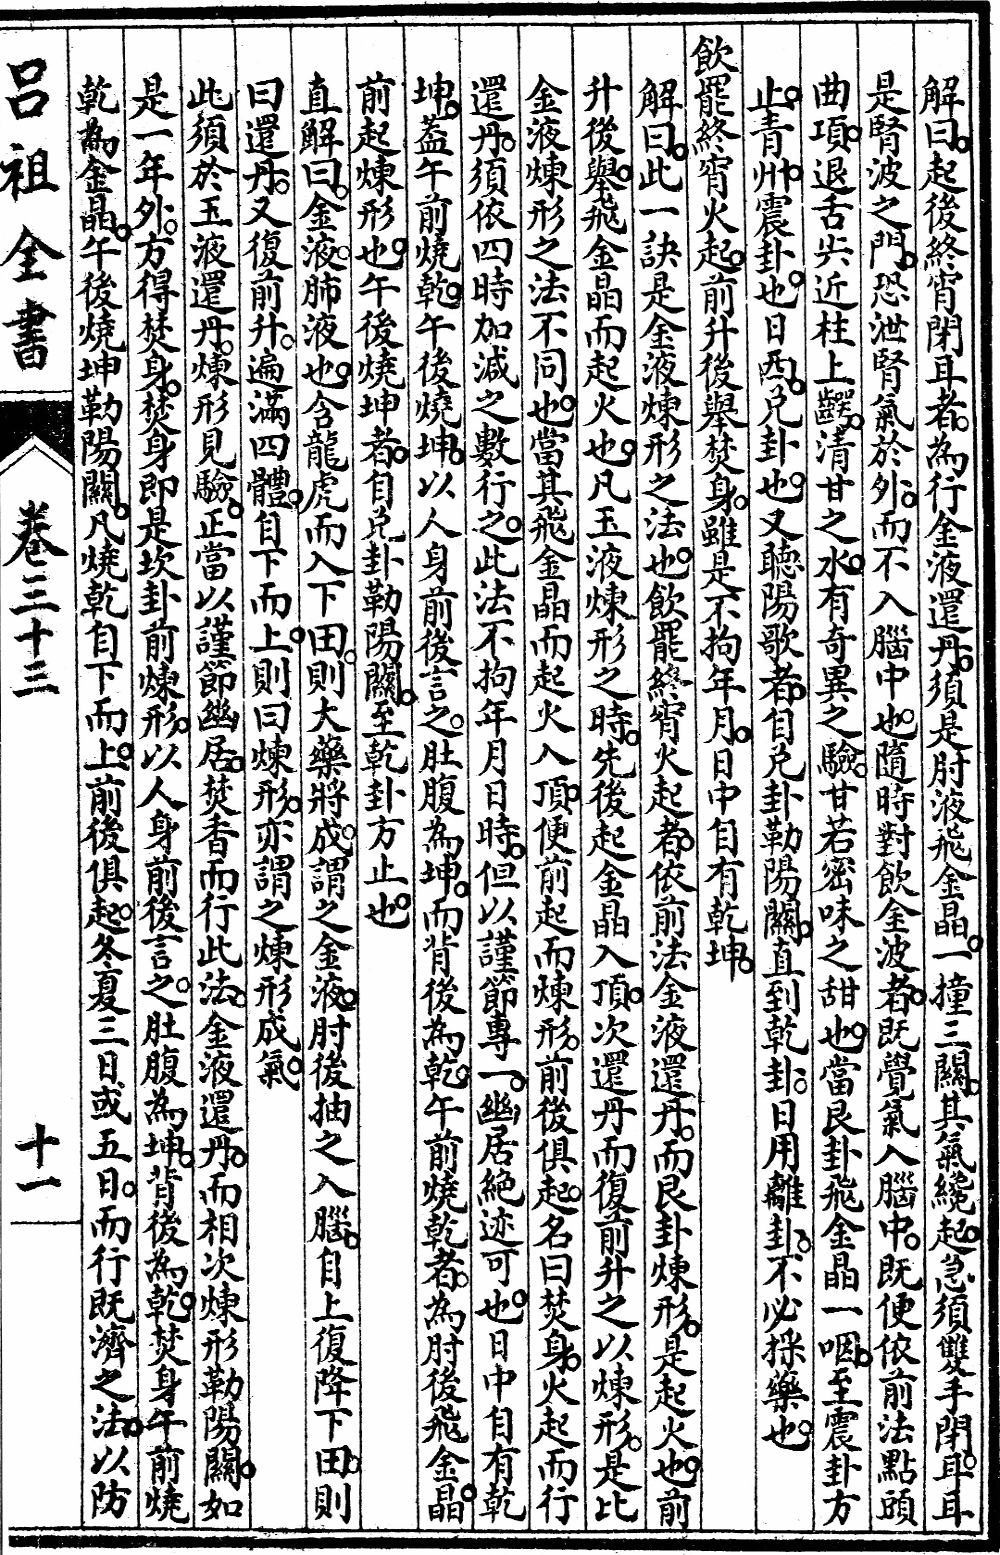 解曰。起後終宵閉耳者。為行金液還丹。須是肘液飛金晶。一撞三關。其氣纔起。急須雙手閉耳。耳
是腎波之門。恐泄腎氣於外。而不入腦中也。隨時對飲金波者。既覺氣入腦中。既便依前法點頭
曲項。退舌尖近柱上齶。清甘之水。有奇異之驗。甘若密味之甜也。當艮卦飛金晶一咽。至震卦方
止。青州震卦也。日西。兌卦也。又聽陽歌者。自兌卦勒陽關。直到乾卦。日用離卦。不必採藥也。
飲罷終宵火起。前升後舉焚身。雖是不拘年月。日中自有乾坤。
解曰。此一訣是金液煉形之法也。飲罷終宵火起者。依前法金液還丹。而艮卦煉形。是起火也。前
升後舉。飛金晶而起火也。凡玉液煉形之時。先後起金晶入頂。次還丹而復前升之以煉形。是比
金液煉形之法不同也。當其飛金晶而起火入頂。便前起而煉形。前後俱起。名曰焚身。火起而行
還丹。須依四時加減之數行之。此法不拘年月日時。但以謹節專一。幽居絕迹可也。日中自有乾
坤。葢午前燒乾。午後燒坤。以人身前後言之。肚腹為坤。而背後為乾。午前燒乾者。為肘後飛金晶。
前起煉形也。午後燒坤者。自兌卦勒陽關。至乾卦方止也。
直解曰。金液。肺液也。含龍虎而入下田。則大藥將成。謂之金液。肘後抽之入腦。自上復降下田。則
曰還丹。又復前升。遍滿四體。自下而上。則曰煉形。亦謂之煉形成氣。
此須於玉液還丹。煉形見驗。正當以謹節幽居。焚香而行此法。金液還丹。而相次煉形勒陽關。如
是一年外。方得焚身。焚身即是坎卦前煉形。以人身前後言之。肚腹為坤。背後為乾。焚身午前燒
乾為金晶。午後燒坤勒陽關。凡燒乾自下而上。前後俱起。冬夏三日或五日。而行既濟之法。以防
呂祖全書
卷三十三
十一